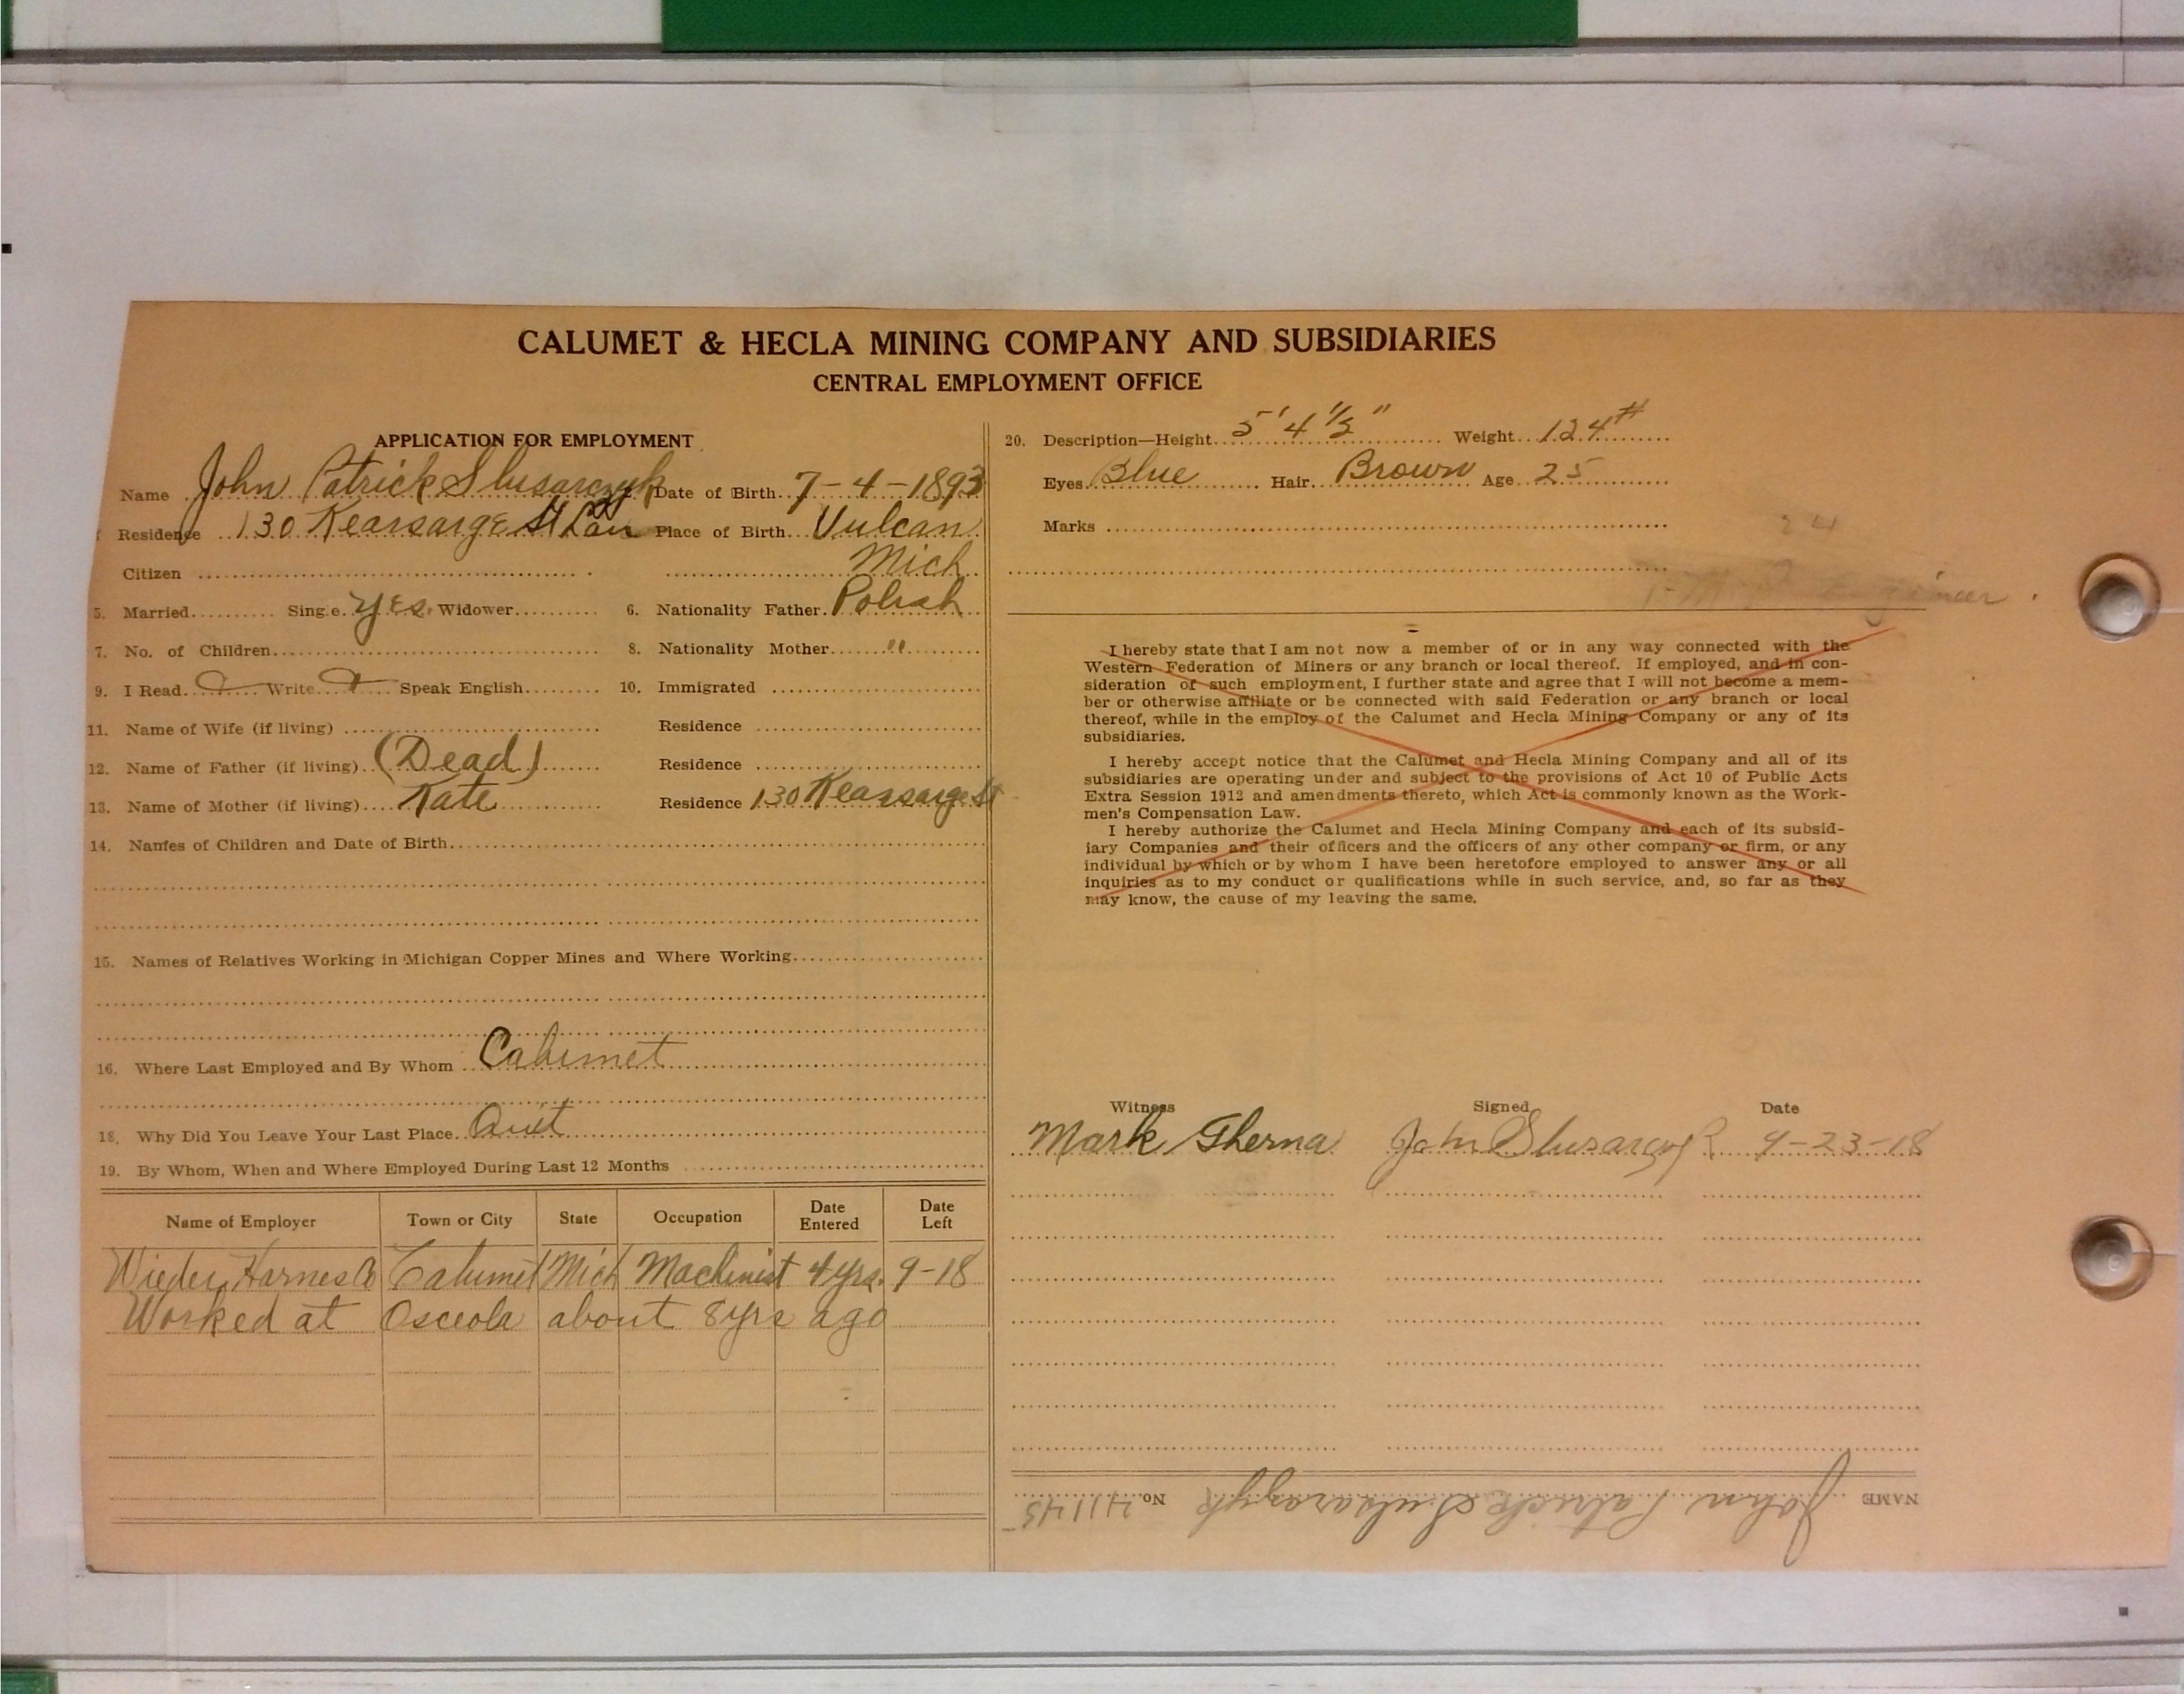 CALUMET & HECLA MINING COMPANY AND SUBSIDIARIES
CENTRAL EMPLOYMENT OFFICE
APPLICATION FOR EMPLOYMENT
Name John Patrick Slusarczyk Date of Birth 7-4-1893
Residence 130 Kearsarge St Lau Place of Birth Vulcan
Citizen Mich
5. Married Single yes. Widower 6. Nationality Father Polish
7. No. of Children 8. Nationality Mother "
9. I Read Write Speak English 10. Immigrated
11. Name of Wife (if living) Residence
12. Name of Father (if living) (Dead) Residence
13. Name of Mother (if living) Kate Residence 130 Kearsarge St
14. Names of Children and Date of Birth
15. Names of Relatives Working in Michigan Copper Mines and Where Working
16. Where Last Employed and By Whom Calumet
18. Why Did You Leave Your Last Place Quit
19. By Whom, When and Where Employed During Last 12 Months
Name of Employer Town or City State Occupation Date Entered Date Left
Wieder Harnes Co Calumet Mich Machinist 4 yrs. 9-18
Worked at Osceola about 8 yrs ago
20. Description—Height 5' 4 1/2" Weight 124#
Eyes Blue Hair Brown Age 25
Marks
24
I hereby state that I am not now a member of or in any way connected with the
Western Federation of Miners or any branch or local thereof. If employed, and in con-
sideration of such employment, I further state and agree that I will not become a mem-
ber or otherwise affiliate or be connected with said Federation or any branch or local
thereof, while in the employ of the Calumet and Hecla Mining Company or any of its
subsidiaries.
I hereby accept notice that the Calumet and Hecla Mining Company and all of its
subsidiaries are operating under and subject to the provisions of Act 10 of Public Acts
Extra Session 1912 and amendments thereto, which Act is commonly known as the Work-
men's Compensation Law.
I hereby authorize the Calumet and Hecla Mining Company and each of its subsid-
iary Companies and their officers and the officers of any other company or firm, or any
individual by which or by whom I have been heretofore employed to answer any or all
inquiries as to my conduct or qualifications while in such service, and, so far as they
may know, the cause of my leaving the same.
Witness Signed Date
Mark Gherna John Slusarczyk 9-23-18
NAME John Patrick Slusarczyk No. 41145